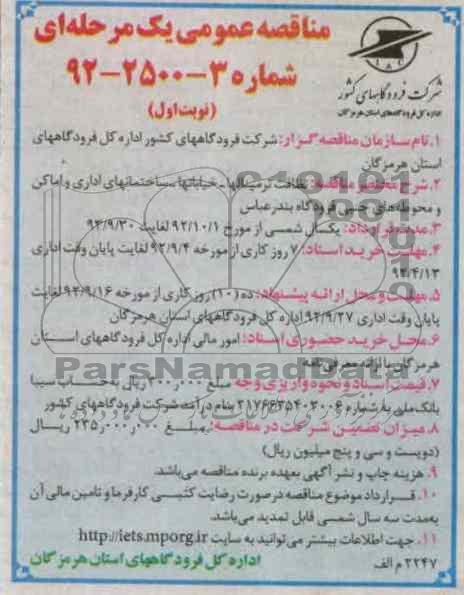 مناقصه عمومی یک مرحله‌ای
شماره ۳-۲۵۰۰-۹۲
(نوبت اول)
IAC
شرکت فرودگاههای کشور
اداره کل فرودگاههای استان هرمزگان
۱. نام سازمان مناقصه گزار: شرکت فرودگاههای کشور اداره کل فرودگاههای
استان هرمزگان
۲. شرح مختصر مناقصه: نظافت ترمینالها - خیابانها - ساختمانهای اداری و اماکن
و محوطه‌های جنبی فرودگاه بندرعباس
۳. مدت قرارداد: یکسال شمسی از مورخ ۹۲/۱۰/۱ لغایت ۹۳/۹/۳۰
۴. مهلت خرید اسناد: ۷ روز کاری از مورخه ۹۲/۹/۴ لغایت پایان وقت اداری
۵. مهلت و محل ارائه پیشنهاد: ده (۱۰) روز کاری از مورخه ۹۲/۹/۱۶ لغایت
پایان وقت اداری ۹۲/۹/۲۷ اداره کل فرودگاههای استان هرمزگان
۶. محل خرید حضوری اسناد: امور مالی اداره کل فرودگاههای استان
هرمزگان با ارائه معرفی نامه
۷. قیمت اسناد و نحوه واریزی وجه مبلغ ۲۰۰٫۰۰۰ ریال به حساب سیبا
بانک ملی به شماره بنام درآمد شرکت فرودگاههای کشور
۸. میزان تضمین شرکت در مناقصه: مبلغ ۲۳۵٫۰۰۰٫۰۰۰ ریال
(دویست و سی و پنج میلیون ریال)
۹. هزینه چاپ و نشر آگهی بعهده برنده مناقصه می‌باشد.
۱۰. قرارداد موضوع مناقصه در صورت رضایت کتبی کارفرما و تامین مالی آن
به مدت سه سال شمسی قابل تمدید می‌باشد.
۱۱. جهت اطلاعات بیشتر می‌توانید به سایت http://iets.mporg.ir
۲۲۴۷ م الف
اداره کل فرودگاههای استان هرمزگان
ParsNamadData